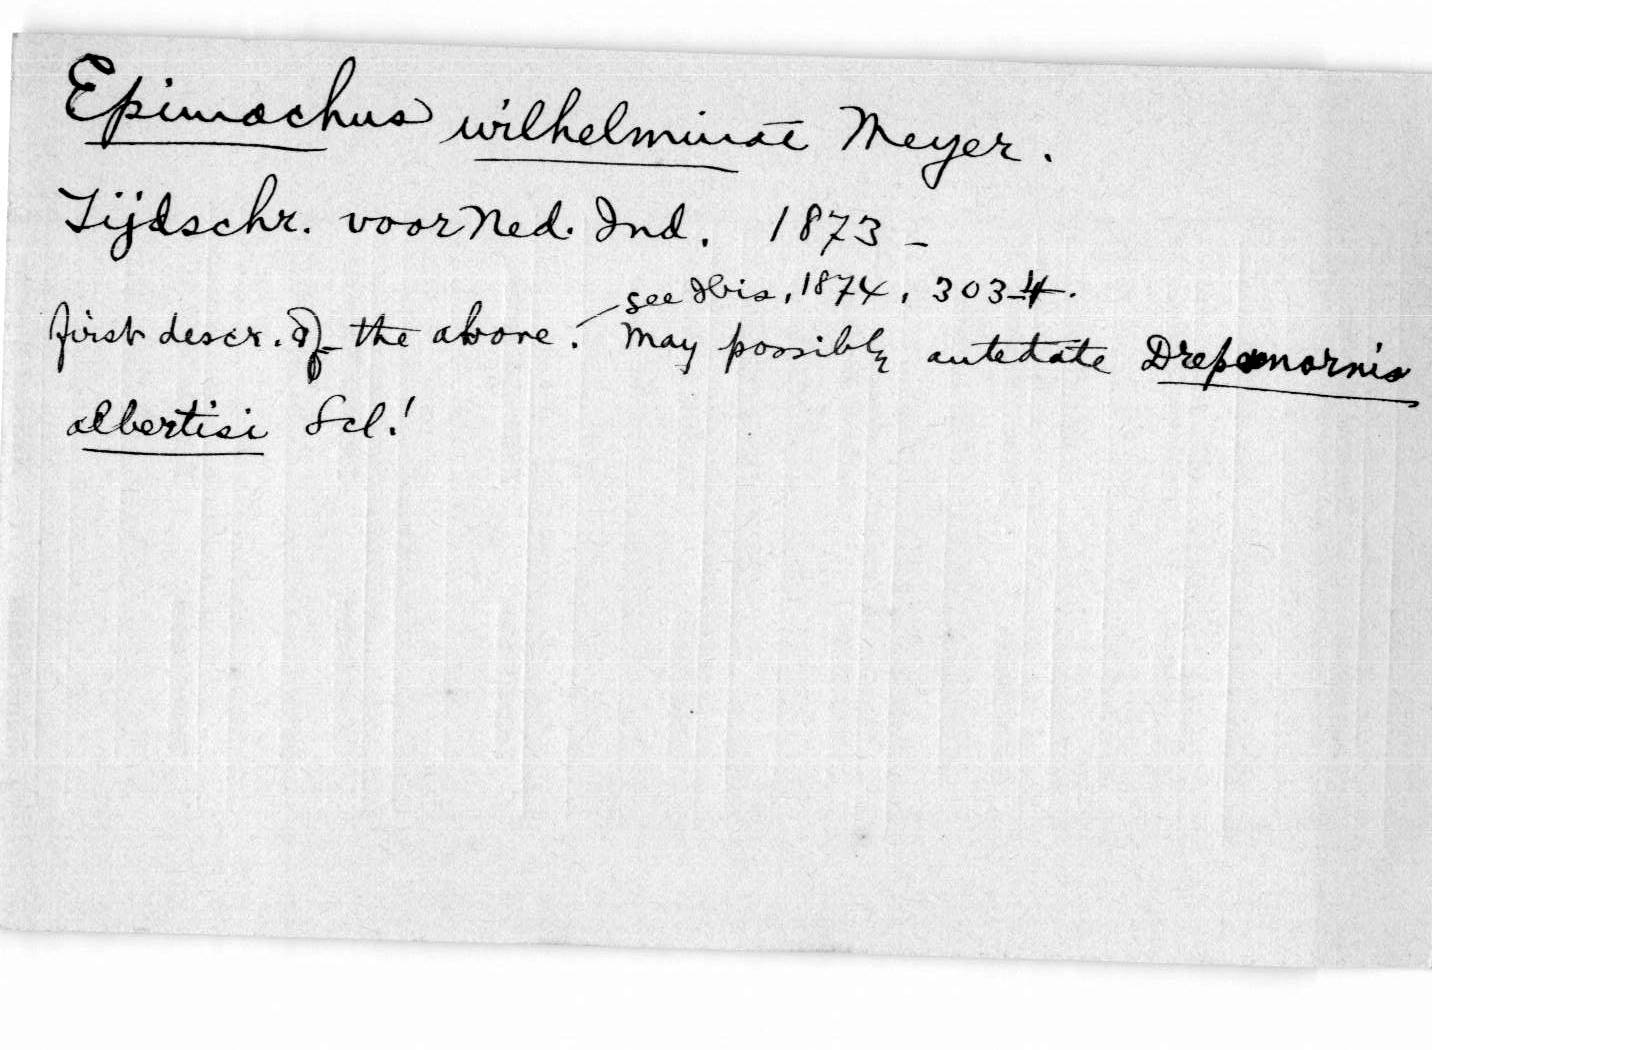 Epimachus wilhelminae Meyer.
Tijdschr. voor Ned. Ind. 1873 -
see Ibis, 1874, 303-4.
first descr. of the above. May possibly antedate Drepanornis
albertisi Scl!